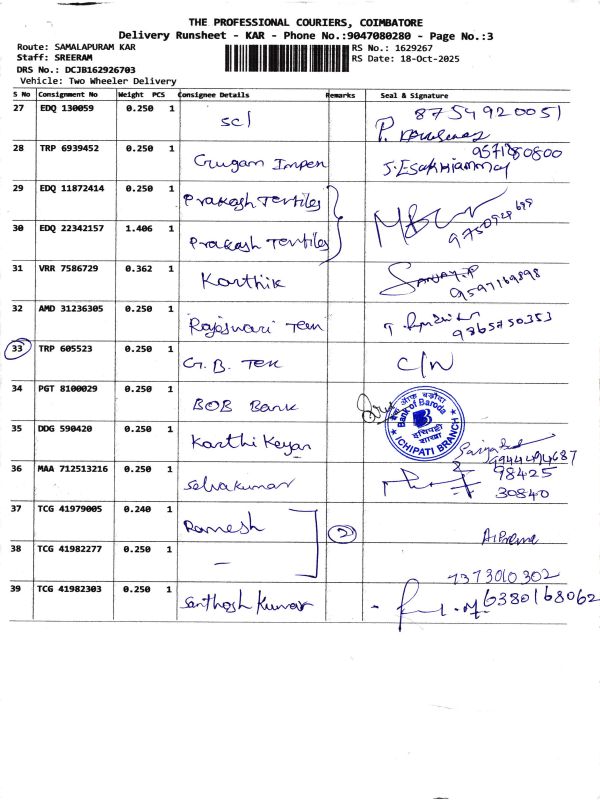 THE PROFESSIONAL COURIERS, COIMBATORE
Delivery Runsheet - KAR - Phone No.:9047080280 - Page No.:3
Route: SAMALAPURAM KAR RS No.: 1629267
Staff: SREERAM RS Date: 18-Oct-2025
DRS No.: DCJB162926703
Vehicle: Two Wheeler Delivery
S No Consignment No Weight PCS Consignee Details Remarks Seal & Signature
27 EDQ 130059 0.250 1 SCl 8754920051
28 TRP 6939452 0.250 1 9571280800
J. Esakkiammal
29 EDQ 11872414 0.250 1 Prakash Textiles
30 EDQ 22342157 1.406 1 Prakash Textiles
31 VRR 7586729 0.362 1 Karthik Sanjay.P
9597169898
32 AMD 31236305 0.250 1 Rajeswari Teen
9865750353
33 TRP 605523 0.250 1 G. B. Tex C/N
34 PGT 8100029 0.250 1 BOB Bank
बैंक ऑफ़ बड़ौदा
Bank of Baroda
शाखा
ICHIPATI BRANCH
35 DDG 590420 0.250 1 Karthi Keyan
36 MAA 712513216 0.250 1 Selvakumar 98425
30840
37 TCG 41979005 0.240 1 Ramesh 2
38 TCG 41982277 0.250 1 - 7373010302
39 TCG 41982303 0.250 1 Santhosh Kumar 6380168062